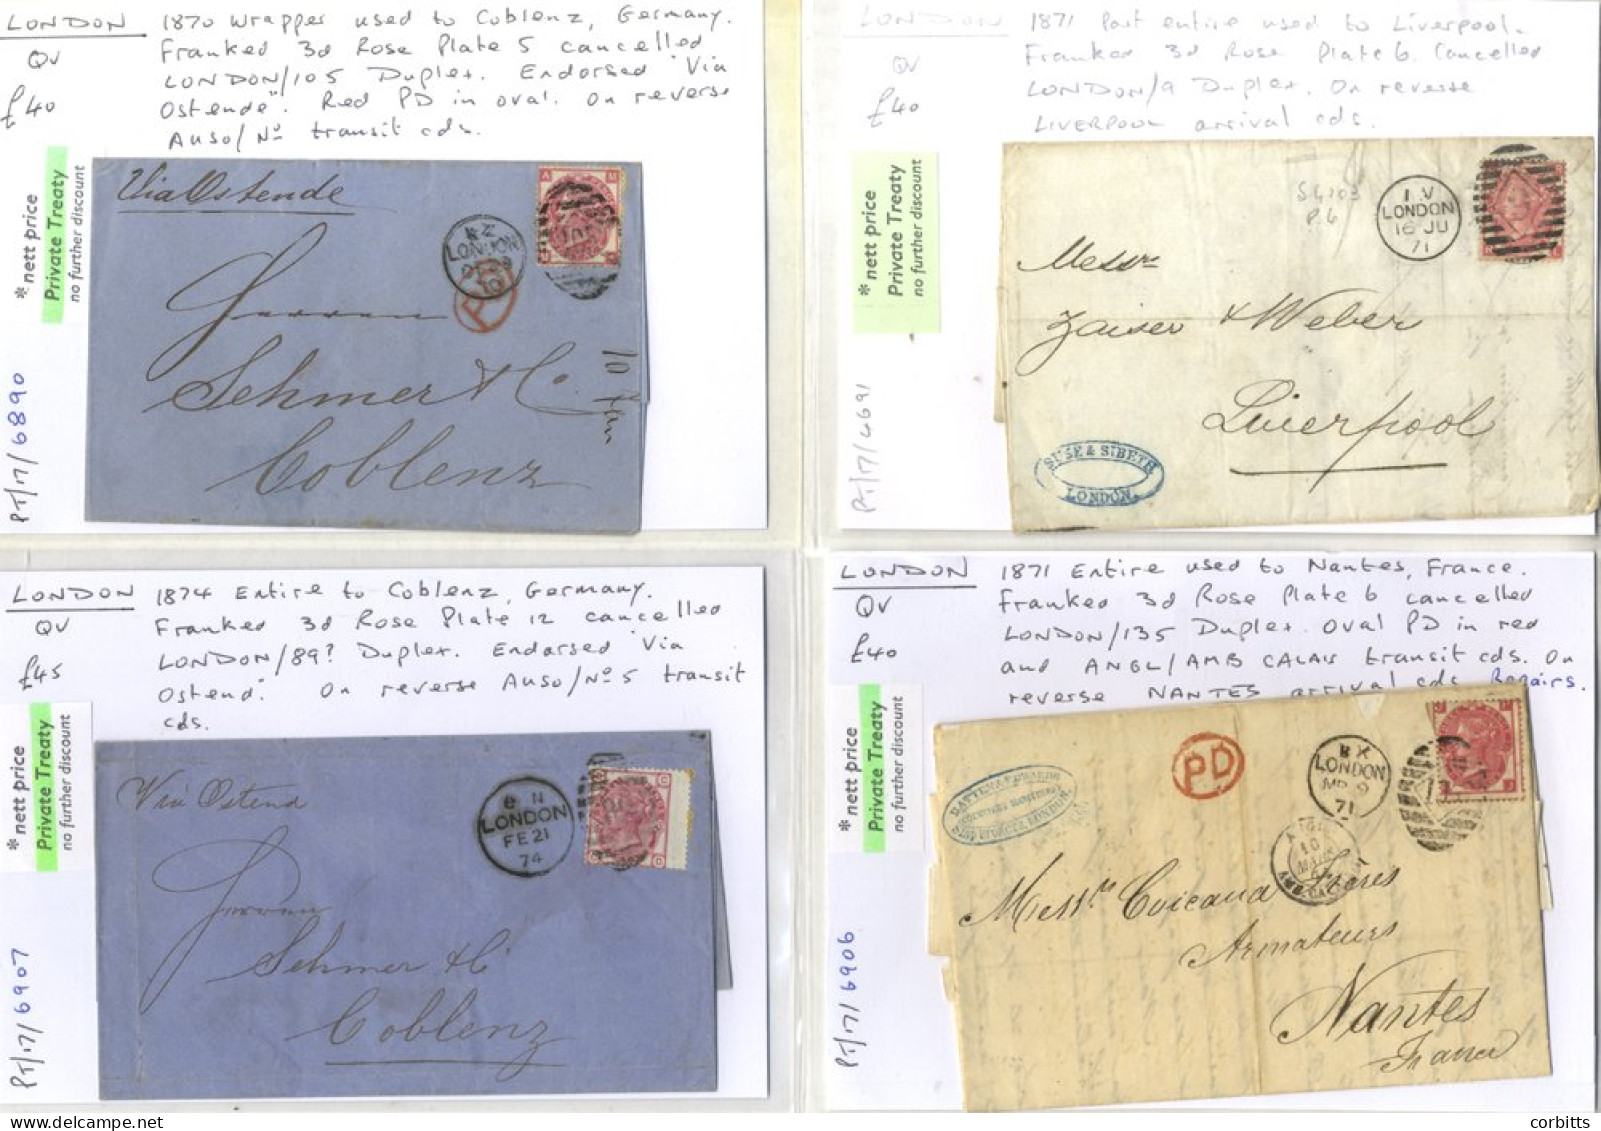 LONDON
QV
£40
1870 Wrapper used to Coblenz, Germany.
Franked 3d Rose Plate 5 cancelled
LONDON/105 Duplex. Endorsed "Via
Ostende". Red PD in oval. On reverse
AUSO/No transit cds.
* nett price
Private Treaty
no further discount
PT/17/6890
Via Ostende
KZ
LONDON
PD
105
Herren
Sehmer & Co.
Coblenz
LONDON
QV
£40
1871 Part entire used to Liverpool.
Franked 3d Rose Plate 6. Cancelled
LONDON/9 Duplex. On reverse
LIVERPOOL arrival cds.
* nett price
Private Treaty
no further discount
PT/17/4691
SG103
P.6
1 V
LONDON
16 JU
71
Messrs
Zaiser & Weber
Liverpool
SUSE & SIBETH
LONDON.
LONDON
QV
£45
1874 Entire to Coblenz, Germany.
Franked 3d Rose Plate 12 cancelled
LONDON/89? Duplex. Endorsed "Via
Ostend". On reverse AUSO/No 5 transit
cds.
* nett price
Private Treaty
no further discount
PT/17/6907
Via Ostend
N
LONDON
FE 21
74
Herren
Sehmer & Co
Coblenz
LONDON
QV
£40
1871 Entire used to Nantes, France.
Franked 3d Rose Plate 6 cancelled
LONDON/135 Duplex. Oval PD in red
and ANGL/AMB CALAIS transit cds. On
reverse NANTES arrival cds Repairs.
* nett price
Private Treaty
no further discount
PT/17/6906
PD
LONDON
MR 9
71
10
MARS
Messrs Frères
Armateurs
Nantes
France
corbitts